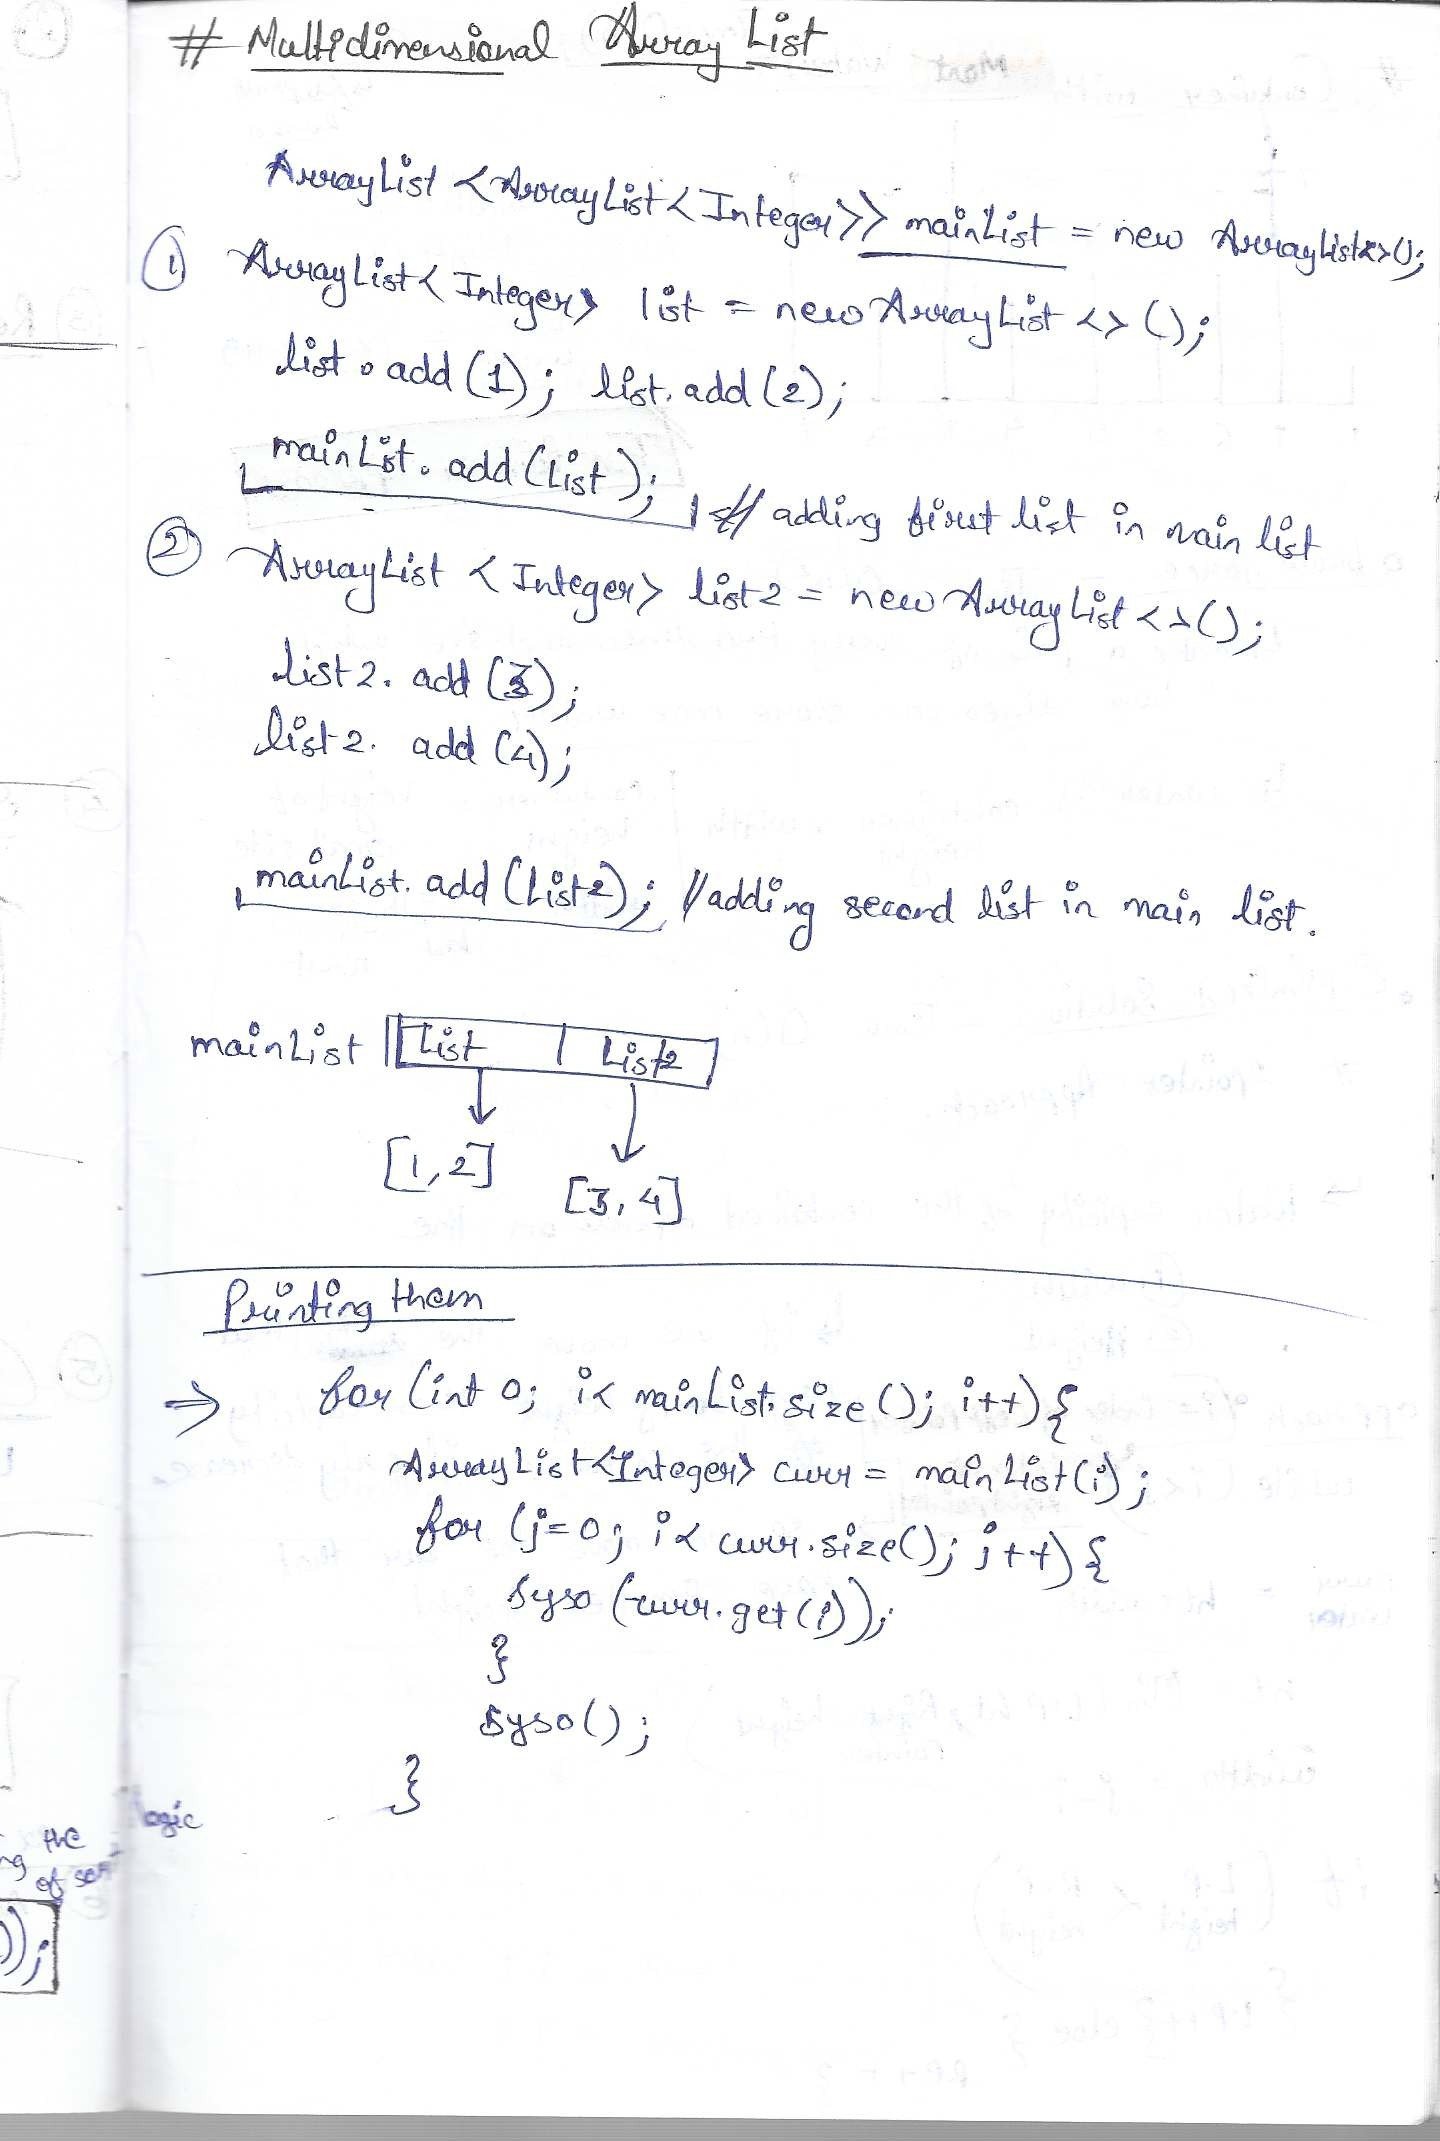 # Multidimensional Array List
ArrayList <ArrayList<Integer>> mainList = new ArrayList<>();
① ArrayList<Integer> list = new ArrayList <>();
list.add(1); list.add(2);
mainList.add(list); // adding first list in main list
② ArrayList <Integer> list2 = new ArrayList <>();
list2.add(3);
list2.add(4);
mainList.add(list2); // adding second list in main list.
mainList List List2
[1,2]
[3,4]
Printing them
⇒ for (int 0; i< mainList.size(); i++){
ArrayList<Integer> curr = mainList(i);
for (j=0; i< curr.size(); j++){
Syso (curr.get(i));
}
Syso();
}
logic
the
of
));